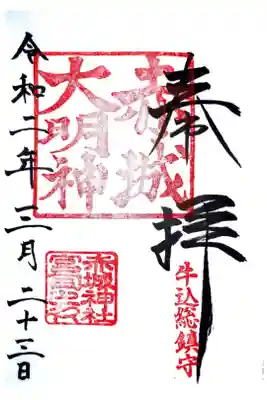 奉拝
牛込総鎮守
赤城
大明神
赤城神社
宮司之印
令和二年三月二十三日